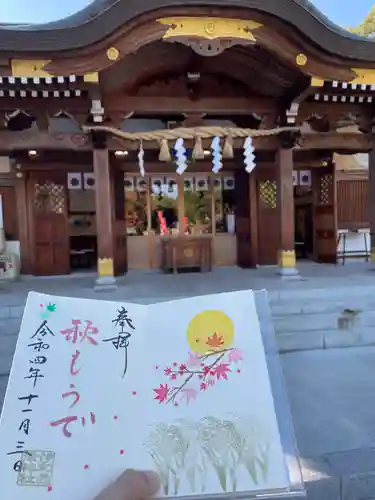 奉拝
秋もうで
令和四年十一月三日